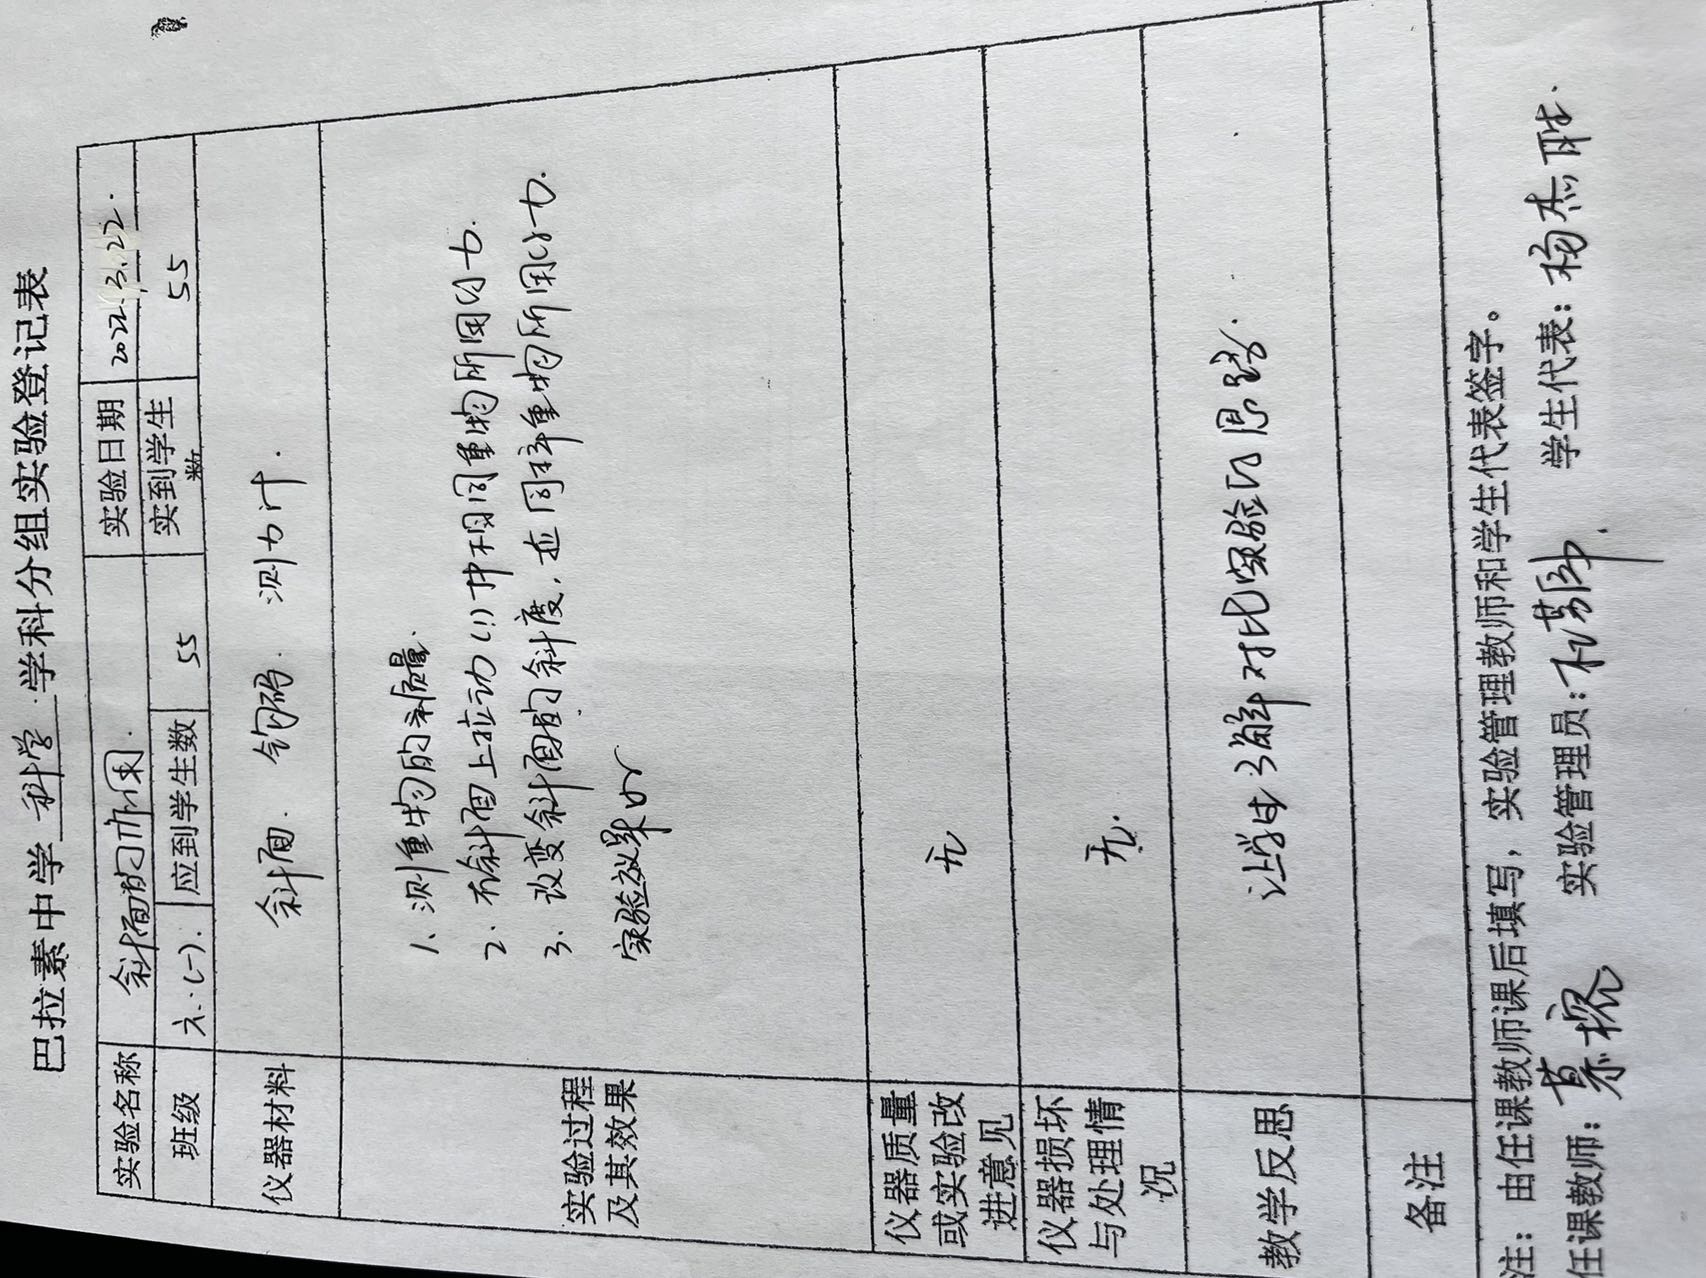 巴拉素中学 科学 学科分组实验登记表
实验名称 斜面的作用. 实验日期 2022.3.22.
班级 六.(一). 应到学生数 55 实到学生数 55
仪器材料 斜面. 钩码. 测力计.
实验过程及其效果
1. 测重物的质量.
2. 在斜面上拉动(1)中相同重物所用的力.
3. 改变斜面的斜度,拉同样重物所用的力.
实验效果好
仪器质量或实验改进意见 无
仪器损坏与处理情况 无.
教学反思 让学生了解对比实验的思路.
备注
注:由任课教师课后填写,实验管理教师和学生代表签字。
任课教师: 实验管理员: 学生代表:杨杰